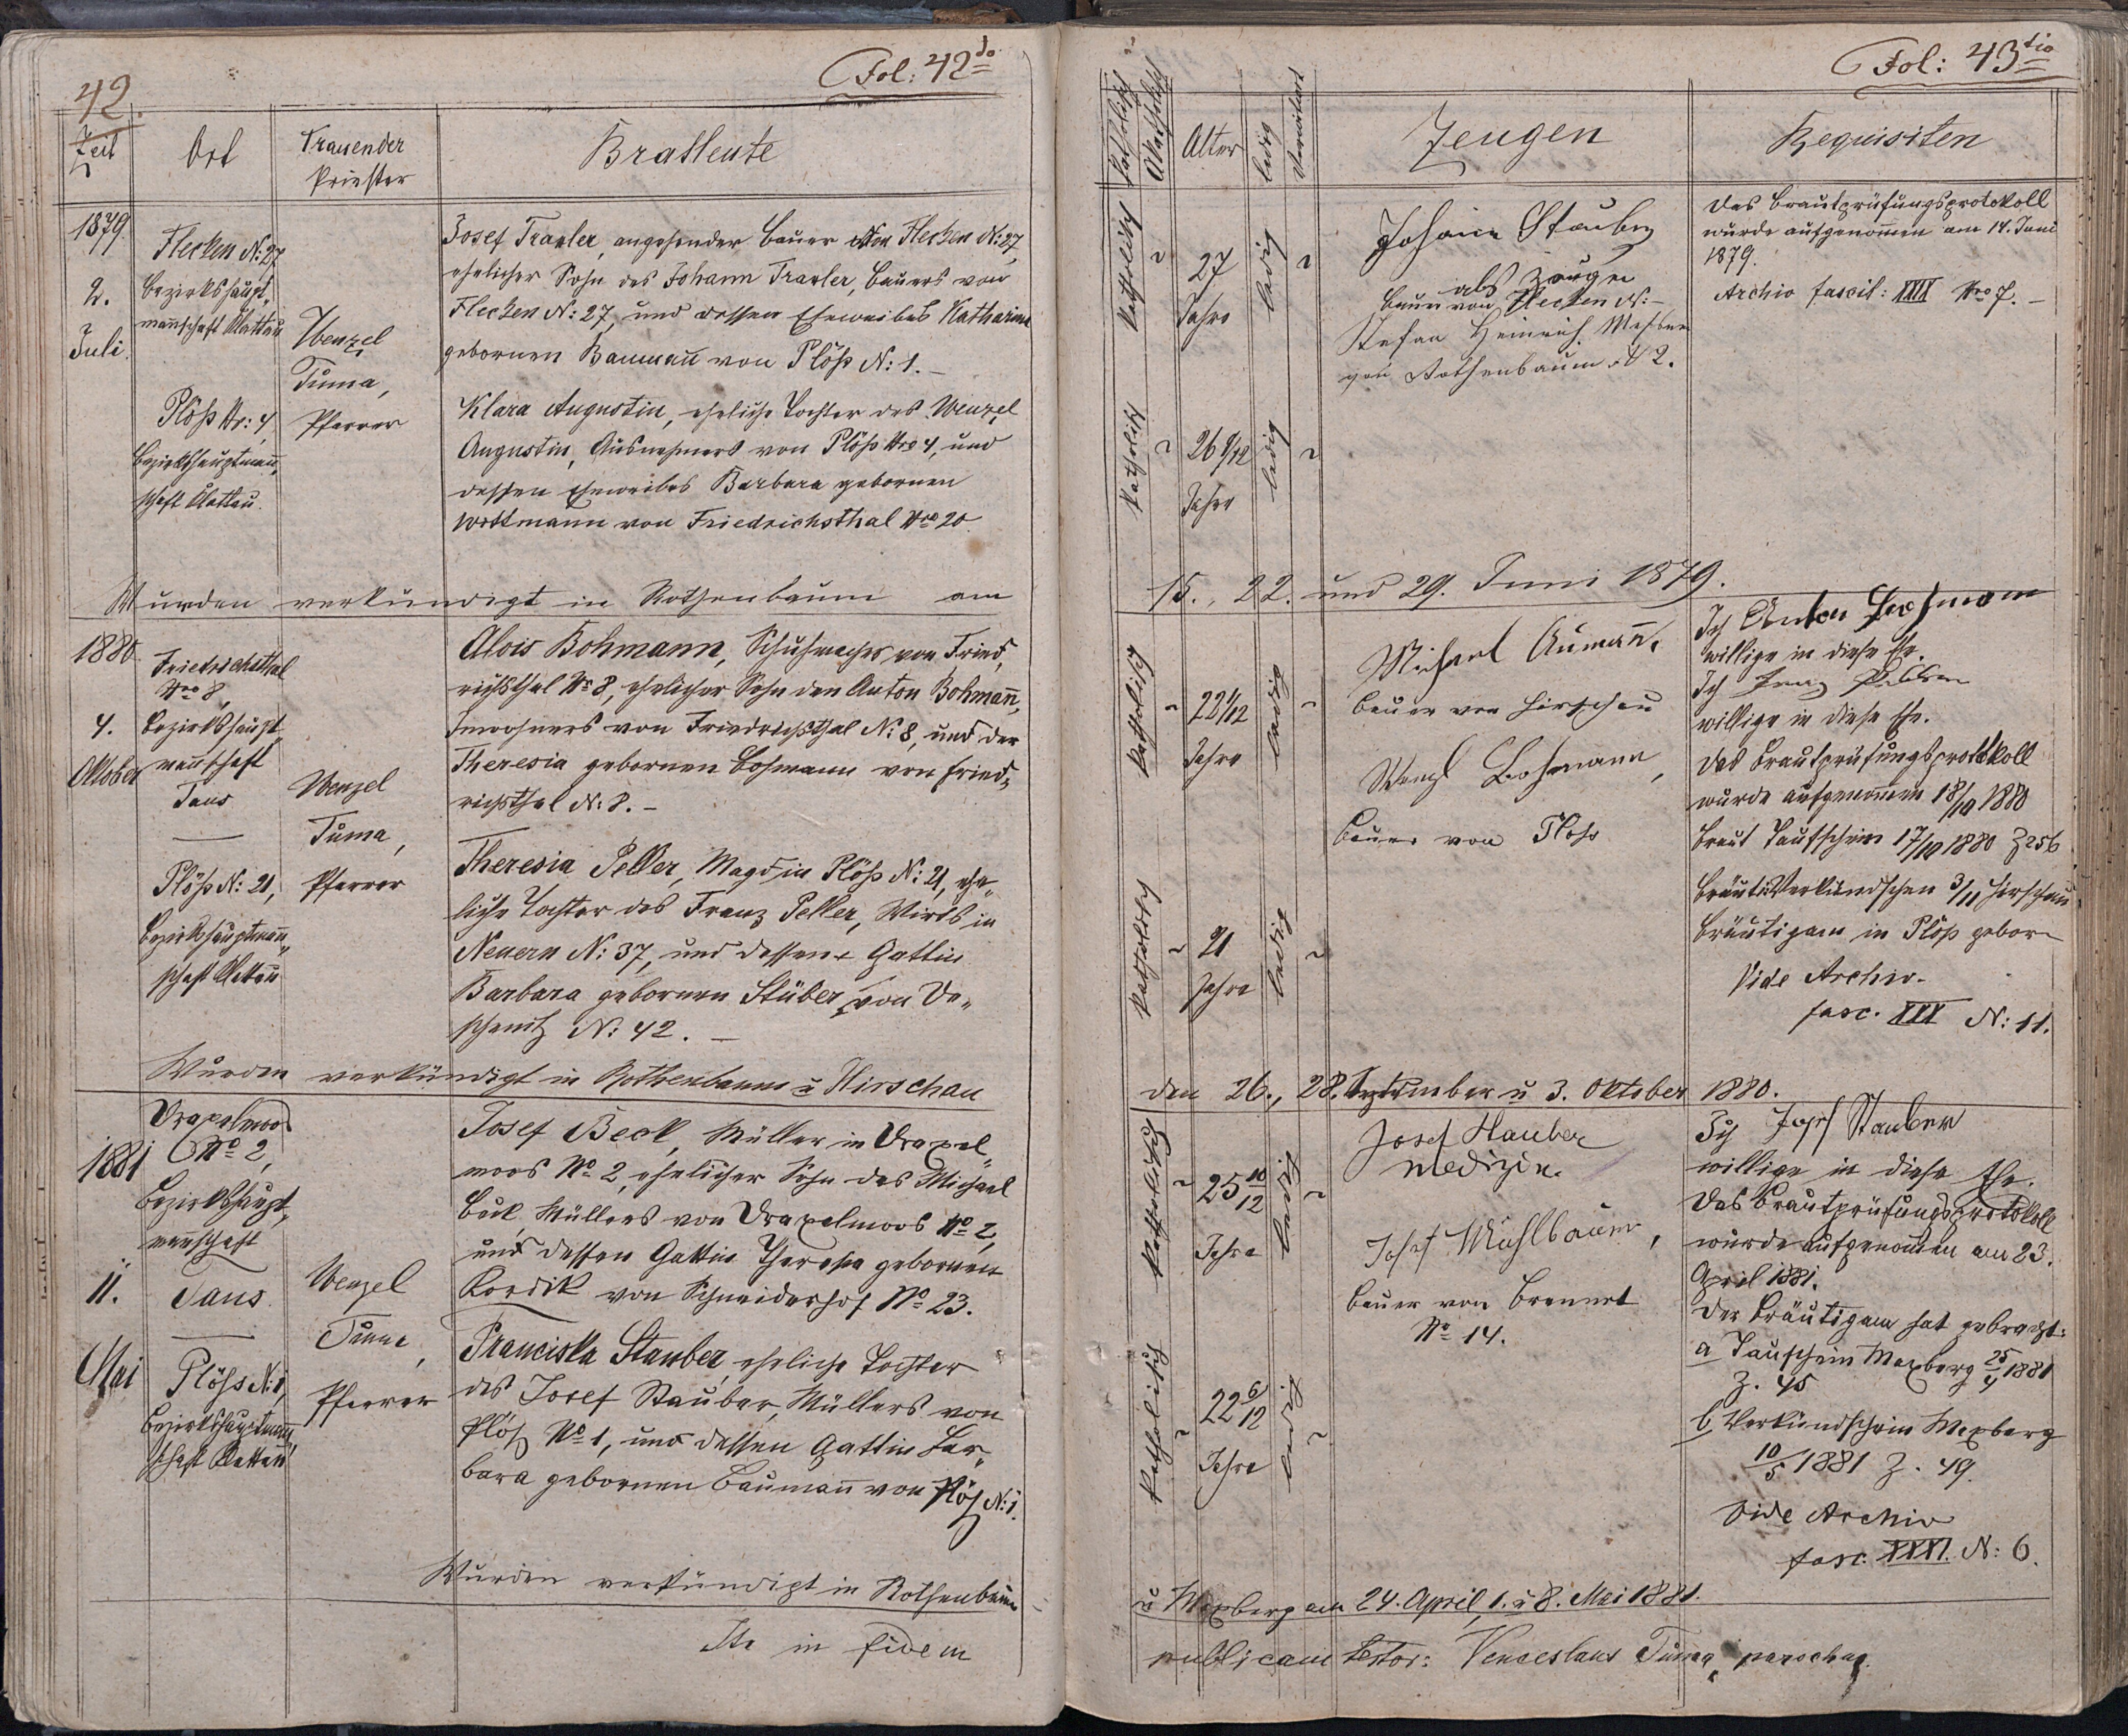 42.
Fol: 42do
Zeit
Ort
Trauender
Priester
Bratleute
1879
2.
Juli.
Flecken N: 27
Bezirkshaupt„
mannschaft Klattau
Plöß Nr: 4,
Bezirkshauptmann„
schaft Klattau.
Wenzel
Tuma,
Pfarrer
Josef Traxler, angehender Bauer von Flecken N: 27,
ehelicher Sohn des Johann Traxler, Bauers von
Flecken N: 27, und dessen Eheweibes Katharina
gebornen Baumann von Plöß N: 1. –
Klara Augustin, eheliche Tochter des Wenzel
Augustin, Ausnehmers von Plöß Nro 4, und
dessen Eheweibes Barbara gebornen
Wottmann von Friedrichsthal Nro 20
Wurden verkündigt in Rothenbaum am
1880
4.
Oktober
Friedrichsthal
Nro 8,
Bezirkshaupt„
mannschaft
Taus
Plöß N: 21,
Bezirkshauptmann„
schaft Klattau
Wenzel
Tuma,
Pfarrer
Alois Bohmann, Schuhmacher von Fried„
richsthal No 8, ehelicher Sohn den Anton Bohmann,
Inwohners von Friedrichsthal N: 8, und der
Theresia gebornen Bohmann von Fried„
richsthal N: 8. –
Theresia Peller, Magd in Plöß N: 21, ehe„
liche Tochter des Franz Peller, Wirts in
Neuern N: 37, und dessen Gattin
Barbara gebornen Stüber, von De„
schenitz N: 42. –
Wurden verkündigt in Rothenbaum u Hirschau
1881
11.
Mai
Draxelmoos
No 2,
Bezirkshaupt„
mannschaft
Taus
Plöß N: 1,
Bezirkshauptmann„
schaft Klattau
Wenzel
Tuma,
Pfarrer
Josef Beck, Müller in Draxel„
moos No 2, ehelicher Sohn des Michael
Beck, Müllers von Draxelmoos No 2,
und dessen Gattin Theresia gebornen
Kordik von Schneiderhof No 23.
Franciska Stauber, eheliche Tochter
des Josef Stauber, Müllers von
Plöß No 1, und dessen Gattin Bar„
bara gebornen Baumann von Plöß N: 1.
Wurden verkündigt in Rothenbaum
Ita in fidem
Fol: 43tio
Katholisch
Akatholisch
Alter
ledig
Verwitwet
Zeugen
Requisiten
Katholisch
27
Jahre
ledig
Katholisch
26 9/12
Jahre
ledig
Johann Stauber
als Zeuge
Bauer von Flecken N: –
Stefan Heinrich Meßner
von Rothenbaum N 2.
Das Brautprüfungsprotokoll
wurde aufgenommen am 14. Juni
1879.
Archiv fascil: XXIX Nro 7. –
15., 22. und 29. Juni 1879.
Katholisch
22 1/12
Jahre
ledig
Katholisch
21
Jahre
ledig
Michael Aumann,
Bauer von Hirschau
Wenzl Bohmann,
Bauer von Plöss
Ich Anton Bohmann
willige in diese Ehe.
Ich Franz
willige in diese Ehe.
Das Brautprüfungsprotokoll
wurde aufgenommen 18/10 1880
Braut Taufschein 17/10 1880 Z 256
Bräut. Verkündschein 3/11 Hirschau
Bräutigam in Plöß geboren
Vide Archiv.
fasc. XXX N: 11.
den 26., 28. September u 3. Oktober 1880.
Katholisch
25 10/12
Jahre
ledig
Katholisch
22 6/12
Jahre
ledig
Josef Stauber
Medizin.
Josef Mühlbauer,
Bauer von Brennet
No 14.
Ich Josef Stauber
willige in diese Ehe.
Das Brautprüfungsprotokoll
wurde aufgenommen am 23.
April 1881.
Der Bräutigam hat gebracht:
a Taufschein Maxberg 25/4 1881
Z. 45
b Verkündschein Maxberg
10/5 1881 Z. 49.
Vide Archiv
fasc. XXXI. N: 6.
u Maxberg am 24. April, 1. u 8. Mai 1881.
publicam testor: Venceslaus Tuma, parochus.